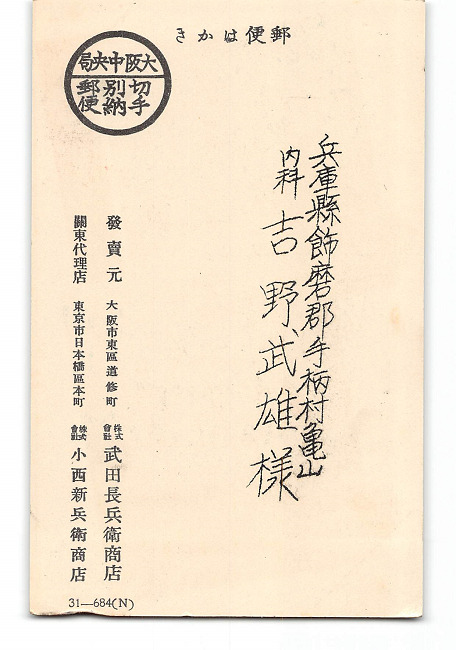 郵便はかき
大阪中央局
切手
別納
郵便
兵庫縣飾磨郡手柄村亀山
内科 吉野武雄様
發賣元 大阪市東區道修町 株式會社 武田長兵衛商店
關東代理店 東京市日本橋區本町 株式會社 小西新兵衛商店
31—684(N)